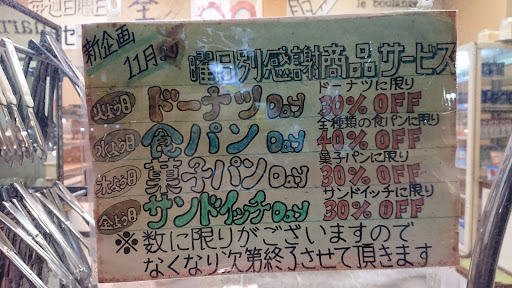 新企画
11月より
曜日別感謝商品サービス
火よう日 ドーナツDay ドーナツに限り 30% OFF
水よう日 食パンDay 全種類の食パンに限り 40% OFF
木よう日 菓子パンDay 菓子パンに限り 30% OFF
金よう日 サンドイッチDay サンドイッチに限り 30% OFF
※数に限りがございますので
なくなり次第終了させて頂きます